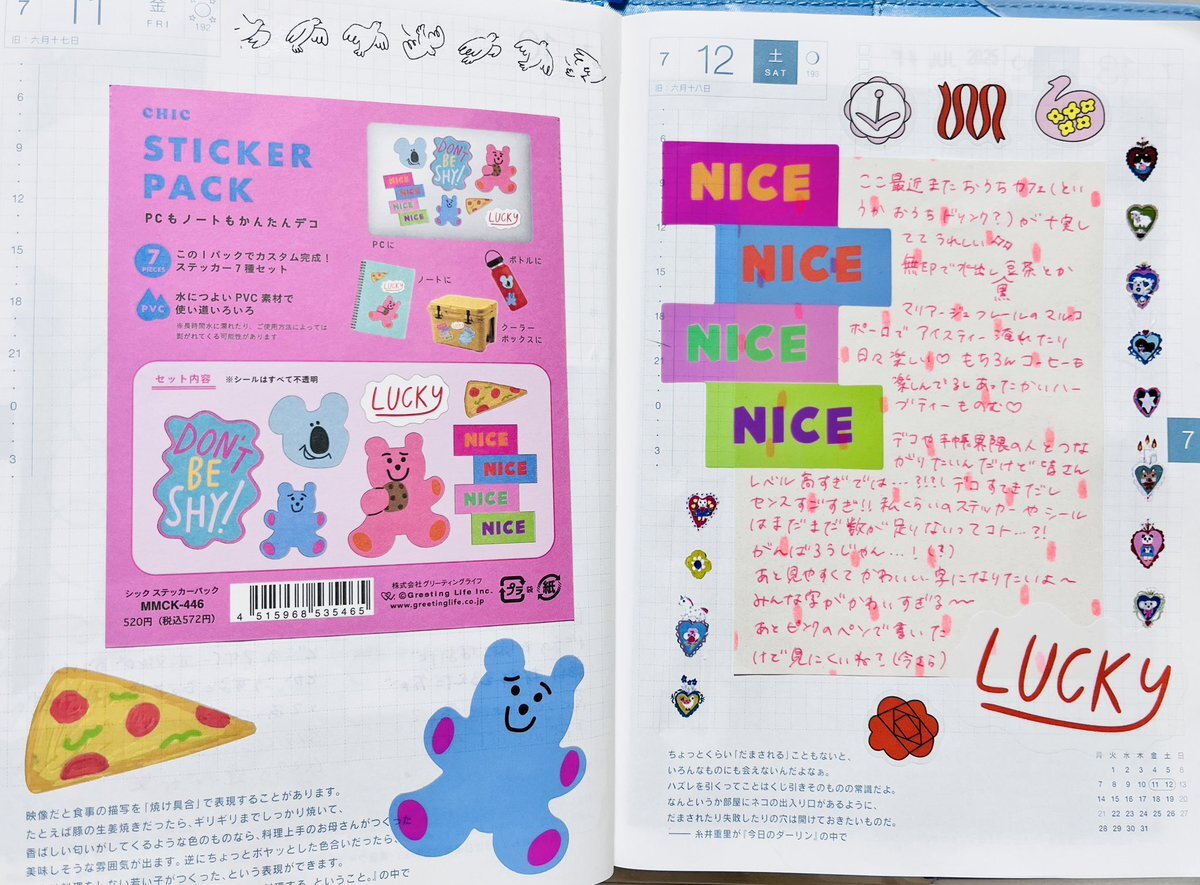 7 11 金 FRI
192
旧：六月十七日
6
9
12
15
18
21
0
3
CHIC
STICKER
PACK
PCもノートもかんたんデコ
7
PIECES
この1パックでカスタム完成！
ステッカー7種セット
PVC
水につよいPVC素材で
使い道いろいろ
※長時間水に濡れたり、ご使用方法によっては
剥がれてくる可能性があります
DON'T
BE
SHY!
NICE
NICE
NICE
NICE
LUCKY
PCに
ノートに
LUCKY
ボトルに
クーラー
ボックスに
セット内容 ※シールはすべて不透明
DON'T
BE
SHY!
LUCKY
NICE
NICE
NICE
NICE
シック ステッカーパック
MMCK-446
520円（税込572円）
4 515968 535465
株式会社グリーティングライフ
©Greeting Life Inc.
www.greetinglife.co.jp
プラ 袋 紙
映像だと食事の描写を『焼け具合』で表現することがあります。
たとえば豚の生姜焼きだったら、ギリギリまでしっかり焼いて、
香ばしい匂いがしてくるような色のものなら、料理上手のお母さんがつくった
美味しそうな雰囲気が出ます。逆にちょっとボヤッとした色合いだったら、
料理をしない若い子がつくった、という表現ができます。
ということ。』の中で
7 12 土 SAT
193
旧：六月十八日
6
9
12
15
18
21
0
3
NICE
NICE
NICE
NICE
ここ最近またおうちカフェ(とい
うかおうちドリンク？)が充実し
ててうれしい
無印で水出し黒豆茶とか
マリアージュフレールのマルコ
ポーロでアイスティー淹れたり
日々楽しい♡ もちろんコーヒーも
楽しんでるしあったかいハー
ブティーものむ♡
デコや手帳界隈の人とつな
がりたいんだけど皆さん
レベル高すぎでは…?!?! デコすてきだし
センスすぎすぎ!! 私くらいのステッカーやシール
はまだまだ数が足りないってコト…?!
がんばろうじゃん…！(？)
あと見やすくてかわいい字になりたいよ〜
みんな字がかわいすぎる〜
あとピンクのペンで書いた
けど見にくいね？(今さら)
LUCKY
7
ちょっとくらい「だまされる」こともないと、
いろんなものにも会えないんだよなぁ。
ハズレを引くってことはくじ引きそのものの常識だよ。
なんというか部屋にネコの出入り口があるように、
だまされたり失敗したりの穴は開けておきたいものだ。
── 糸井重里が『今日のダーリン』の中で
月 火 水 木 金 土 日
1 2 3 4 5 6
7 8 9 10 11 12 13
14 15 16 17 18 19 20
21 22 23 24 25 26 27
28 29 30 31